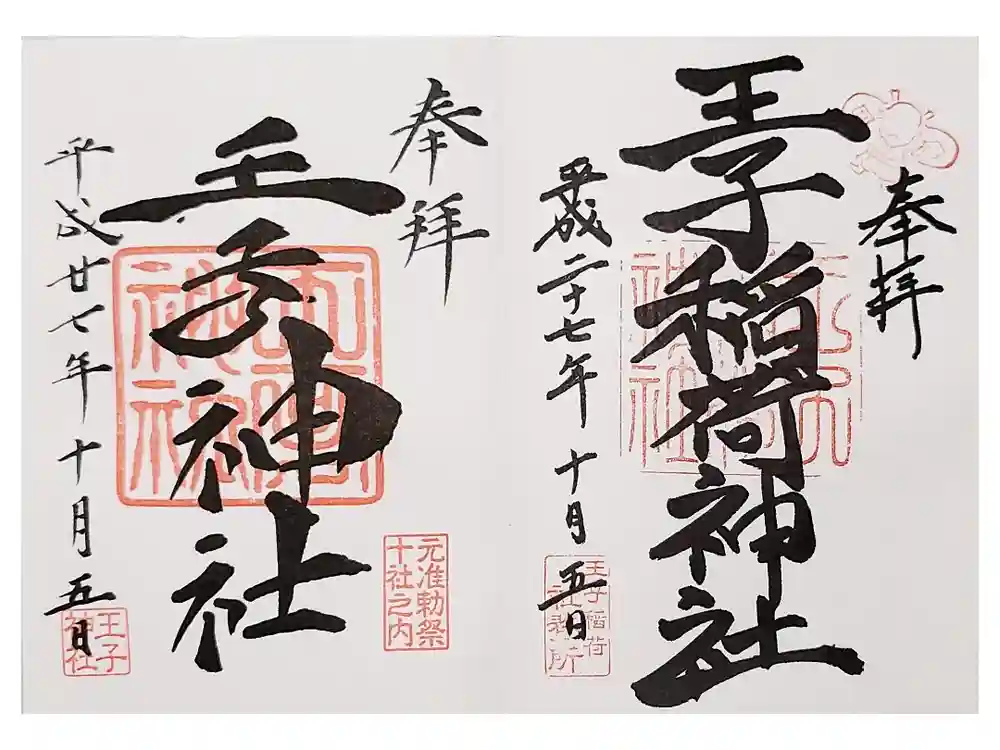 奉拝
王子稲荷神社
平成二十七年十月五日
王子稲荷
社務所
奉拝
王子神社
元准勅祭
十社之内
平成廿七年十月五日
王子
神社